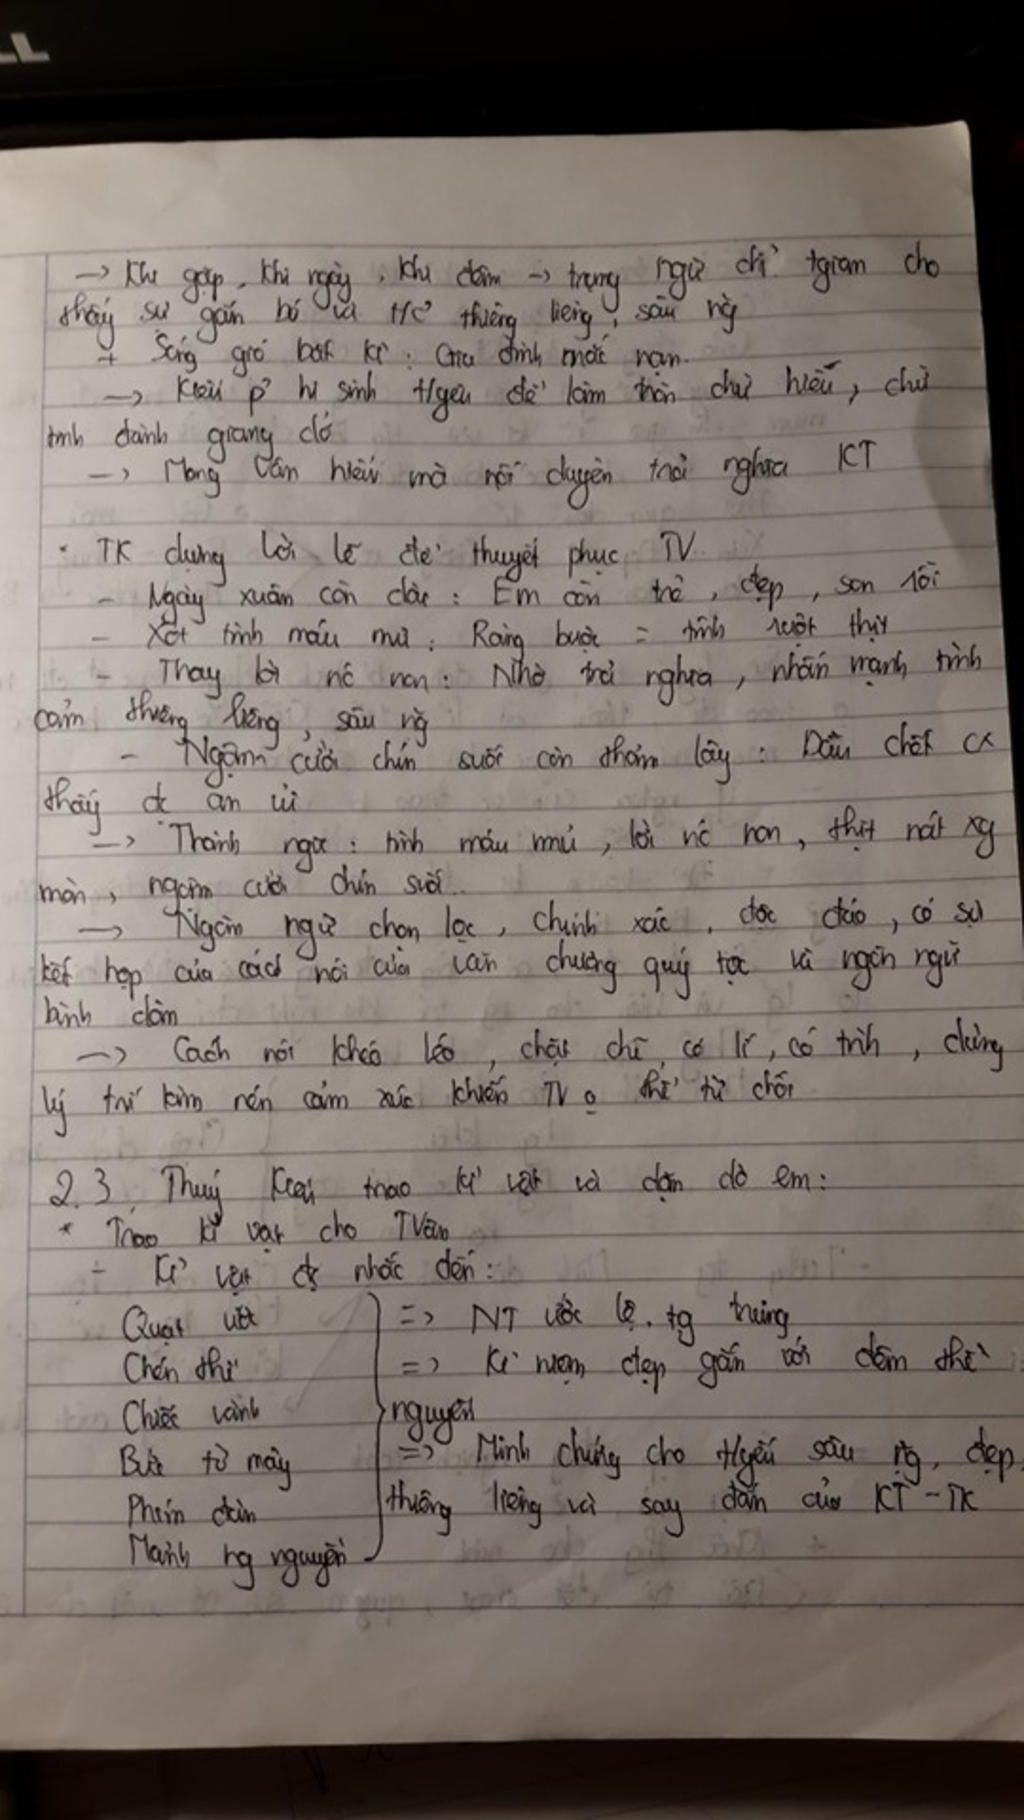 LL
→ Khi gặp, khi ngày, khi đêm → trạng ngữ chỉ tgian cho
thấy sự gắn bó và t/c thiêng liêng, sâu nặng
+ Sóng gió bất kì: Gia đình mắc nạn.
→ Kiều p hi sinh tyêu để làm tròn chữ hiếu, chữ
tình đành giang dở
→ Mong Vân hiểu mà nối duyên trả nghĩa KT
· TK dùng lời lẽ để thuyết phục TV
- Ngày xuân còn dài: Em còn trẻ, đẹp, son rỗi
- Xót tình máu mủ: Ràng buộc = tình ruột thịt
- Thay lời nc non: Nhờ trả nghĩa, nhấn mạnh tình
cảm thiêng liêng, sâu nặng
- Ngậm cười chín suối còn thơm lây: Dẫu chết cx
thấy đc an ủi
→ Thành ngữ: tình máu mủ, lời nc non, thịt nát xg
mòn, ngậm cười chín suối..
→ Ngôn ngữ chọn lọc, chính xác, độc đáo, có sự
kết hợp của cách nói của văn chương quý tộc và ngôn ngữ
bình dân
→ Cách nói khéo léo, chặt chẽ, có lí, có tình, dùng
lý trí kìm nén cảm xúc khiến TV o thể từ chối
2.3 Thuý Kiều trao kỉ vật và dặn dò em:
* Trao kỉ vật cho TVân
- Kỉ vật đc nhắc đến:
Quạt ước => NT ước lệ. tg trưng
Chén thề => Kỉ niệm đẹp gắn với đêm thề
Chiếc vành nguyền
Bức tờ mây => Minh chứng cho tyêu sâu nặng, đẹp,
Phím đàn thiêng liêng và say đắm của KT - TK
Mảnh hg nguyền